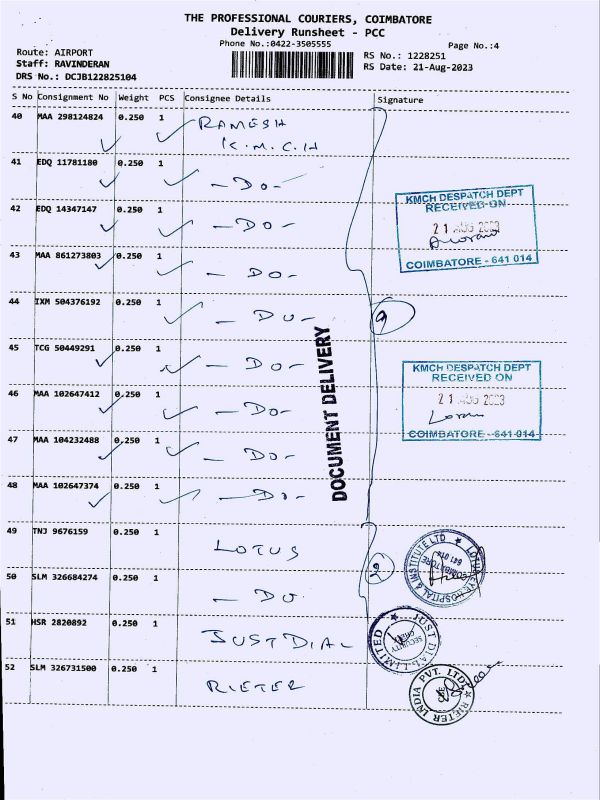 THE PROFESSIONAL COURIERS, COIMBATORE
Delivery Runsheet - PCC
Phone No.:0422-3505555
Page No.:4
Route: AIRPORT
RS No.: 1228251
Staff: RAVINDERAN
RS Date: 21-Aug-2023
DRS No.: DCJB122825104
S No Consignment No Weight PCS Consignee Details Signature
40 MAA 298124824 0.250 1 RAMESH
K.M.C.H
41 EDQ 11781180 0.250 1 -DO-
42 EDQ 14347147 0.250 1 -DO-
43 MAA 861273803 0.250 1 -DO-
KMCH DESPATCH DEPT
RECEIVED ON
21 AUG 2023
COIMBATORE - 641 014
44 IXM 504376192 0.250 1 -DO- 9
45 TCG 50449291 0.250 1 -DO-
46 MAA 102647412 0.250 1 -DO-
47 MAA 104232488 0.250 1 -DO-
48 MAA 102647374 0.250 1 -DO-
KMCH DESPATCH DEPT
RECEIVED ON
21 AUG 2023
COIMBATORE - 641 014
DOCUMENT DELIVERY
49 TNJ 9676159 0.250 1 LOTUS
50 SLM 326684274 0.250 1 -DO 2
LOTUS EYE HOSPITAL & INSTITUTE LTD
COIMBATORE
641 014
51 HSR 2820892 0.250 1 JUSTDIAL
JUST DIAL LIMITED
SECURITY
52 SLM 326731500 0.250 1 RIETER
RIETER INDIA PVT. LTD.